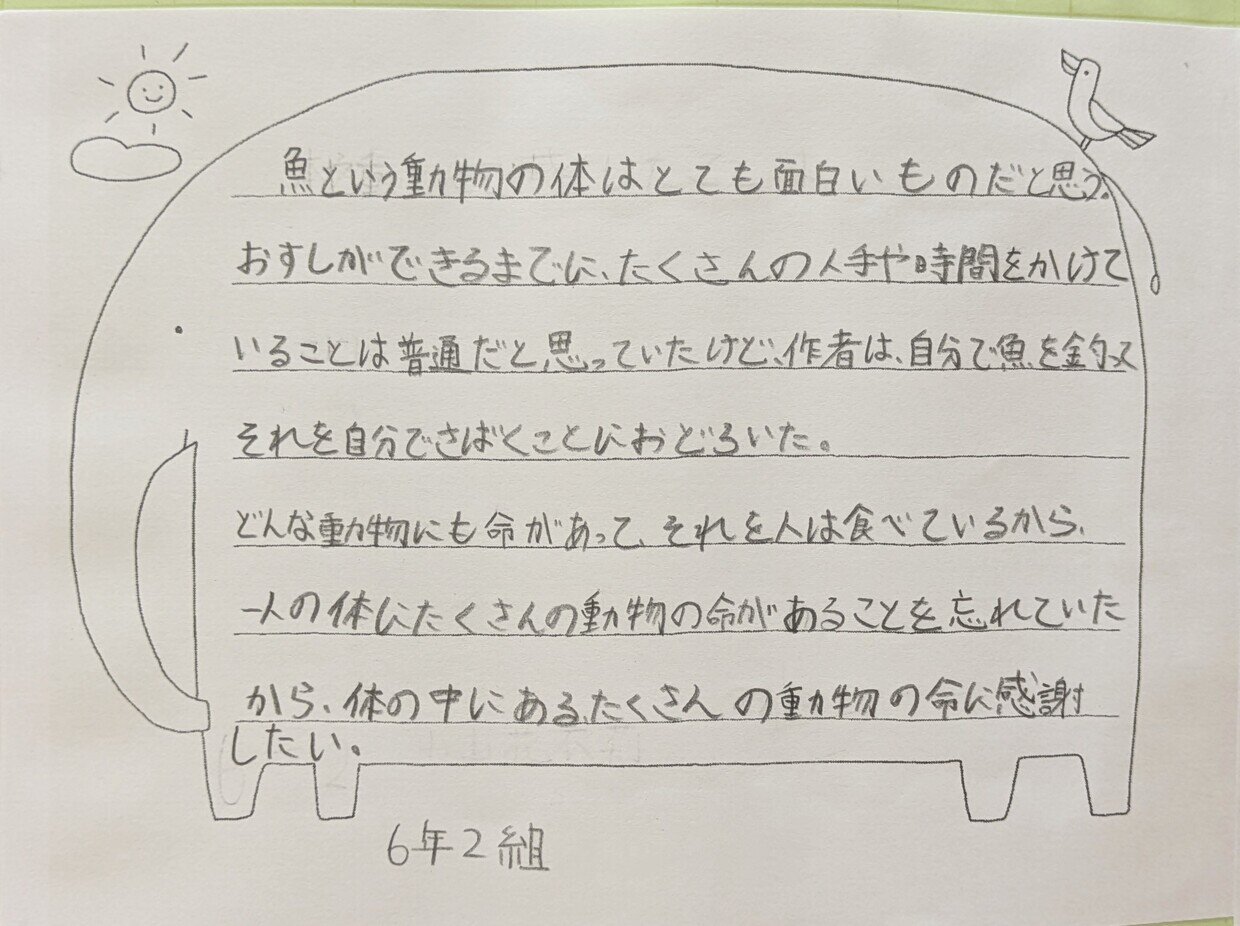 魚という動物の体はとても面白いものだと思う。
おすしができるまでに、たくさんの人手や時間をかけて
いることは普通だと思っていたけど、作者は、自分で魚を釣って
それを自分でさばくことにおどろいた。
どんな動物にも命があって、それを人は食べているから、
一人の体にたくさんの動物の命があることを忘れていた
から、体の中にある、たくさんの動物の命に感謝
したい。
6年2組